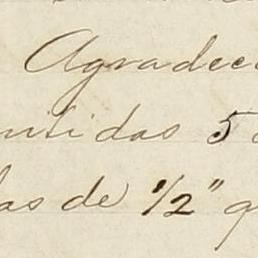 Agradec
ntidas 5
las de 1/2" q